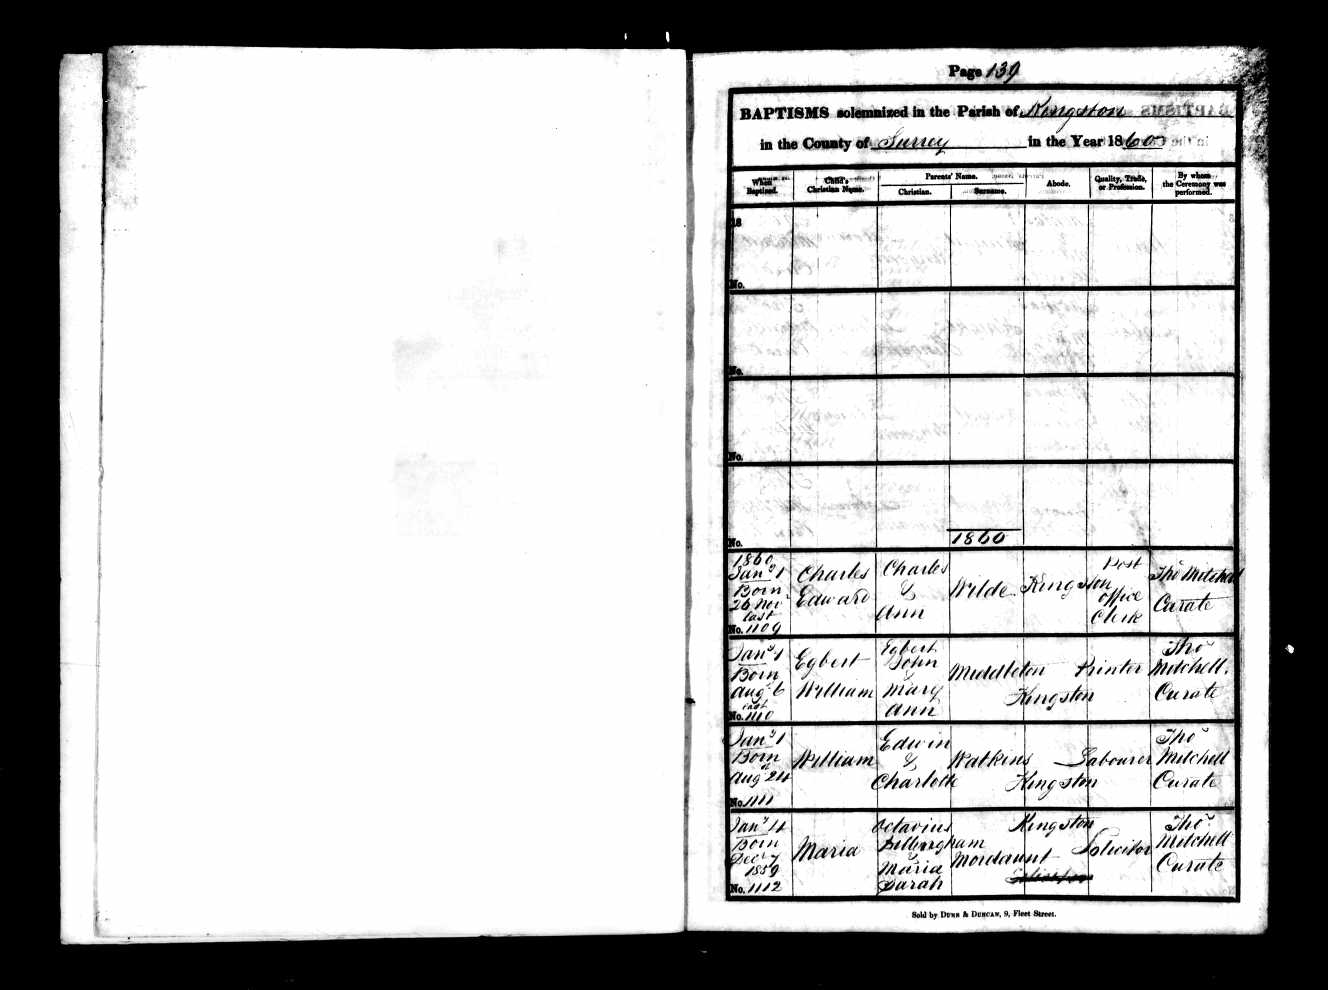 Page 139
BAPTISMS solemnized in the Parish of Kingston
in the County of Surrey in the Year 1860
When Baptized.
Child's Christian Name.
Parents' Name.
Christian.
Surname.
Abode.
Quality, Trade, or Profession.
By whom the Ceremony was performed.
18
No.
No.
No.
No.
1860
1860
Jany 1
Born
26 Nov
last
No. 1109
Charles
Edward
Charles
&
Ann
Wilde
Kingston
Post
Office
Clerk
Thos Mitchell
Curate
Jany 1
Born
Aug 6
last
No. 1110
Egbert
William
Egbert
John
&
Mary
Ann
Middleton
Kingston
Printer
Thos
Mitchell.
Curate
Jany 1
Born
Aug 24
No. 1111
William
Edwin
&
Charlotte
Watkins
Kingston
Labourer
Thos
Mitchell
Curate
Jany 4
Born
Decr 7
1859
No. 1112
Maria
Octavius
Billingham
&
Maria
Sarah
Mordaunt
Kingston
Solicitor
Thos
Mitchell
Curate
Sold by DUNN & DUNCAN, 9, Fleet Street.